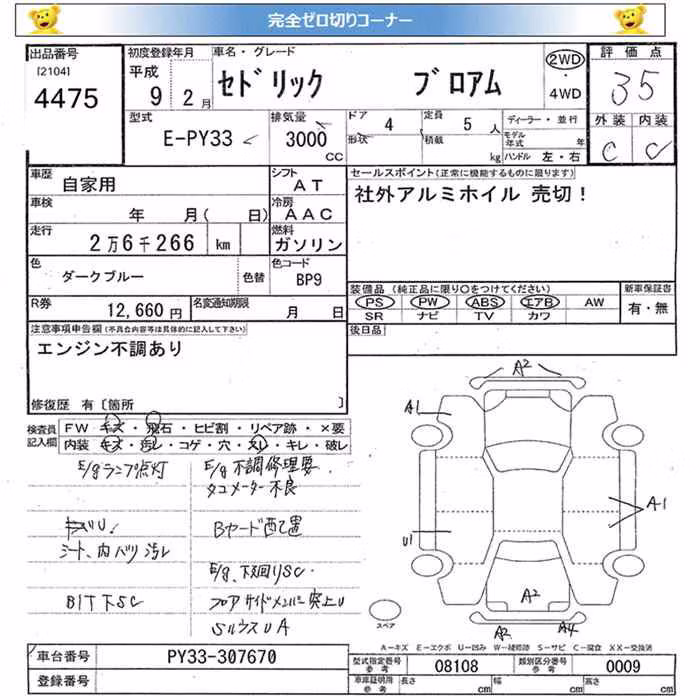 完全ゼロ切りコーナー
出品番号
[2104]
4475
初度登録年月
平成
9年 2月
車名・グレード
セドリック ブロアム
2WD
・
4WD
評価点
35
外装 内装
C C
型式
E-PY33
排気量
3000
CC
ドア 4
形状
定員 5 人
積載 kg
ディーラー・並行
モデル年式 年
ハンドル 左・右
車歴 自家用
シフト AT
車検 年 月( 日)
冷房 AAC
走行 2万6千266 km
燃料 ガソリン
色 ダークブルー 色替
色コード BP9
R券 12,660円
名変通知期限 月 日
セールスポイント(正常に機能するものに限ります)
社外アルミホイル 売切!
装備品 (純正品に限り○をつけてください)
PS PW ABS エアB AW
SR ナビ TV カワ
新車保証書
有・無
後日品
注意事項申告欄(不具合内容等は具体的に記入して下さい)
エンジン不調あり
修復歴 有〔箇所 〕
検査員記入欄
FW キズ・飛石・ヒビ割・リペア跡・×要
内装 キズ・汚レ・コゲ・穴・スレ・キレ・破レ
E/gランプ点灯
E/g不調修理要
タコメーター不良
キズU.
シート、内バリ汚レ
Bヤード配置
E/g、下回りSC.
BIT下SC
フロアサイドメンバー突上U
SルウスUA
A2
A1
A1
U1
A2
A2 A4
スペア
A-キズ E-エクボ U-凹み W-補修跡 S-サビ C-腐食 XX-交換済
車台番号 PY33-307670
登録番号
型式指定番号
参考
08108
類別区分番号
参考
0009
車庫証明用
参考
長さ cm 幅 cm 高さ cm